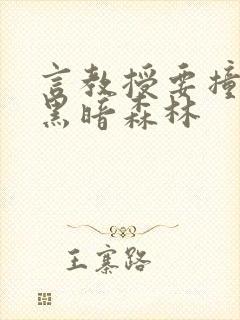 言教授要撞
黑暗森林
王寨路